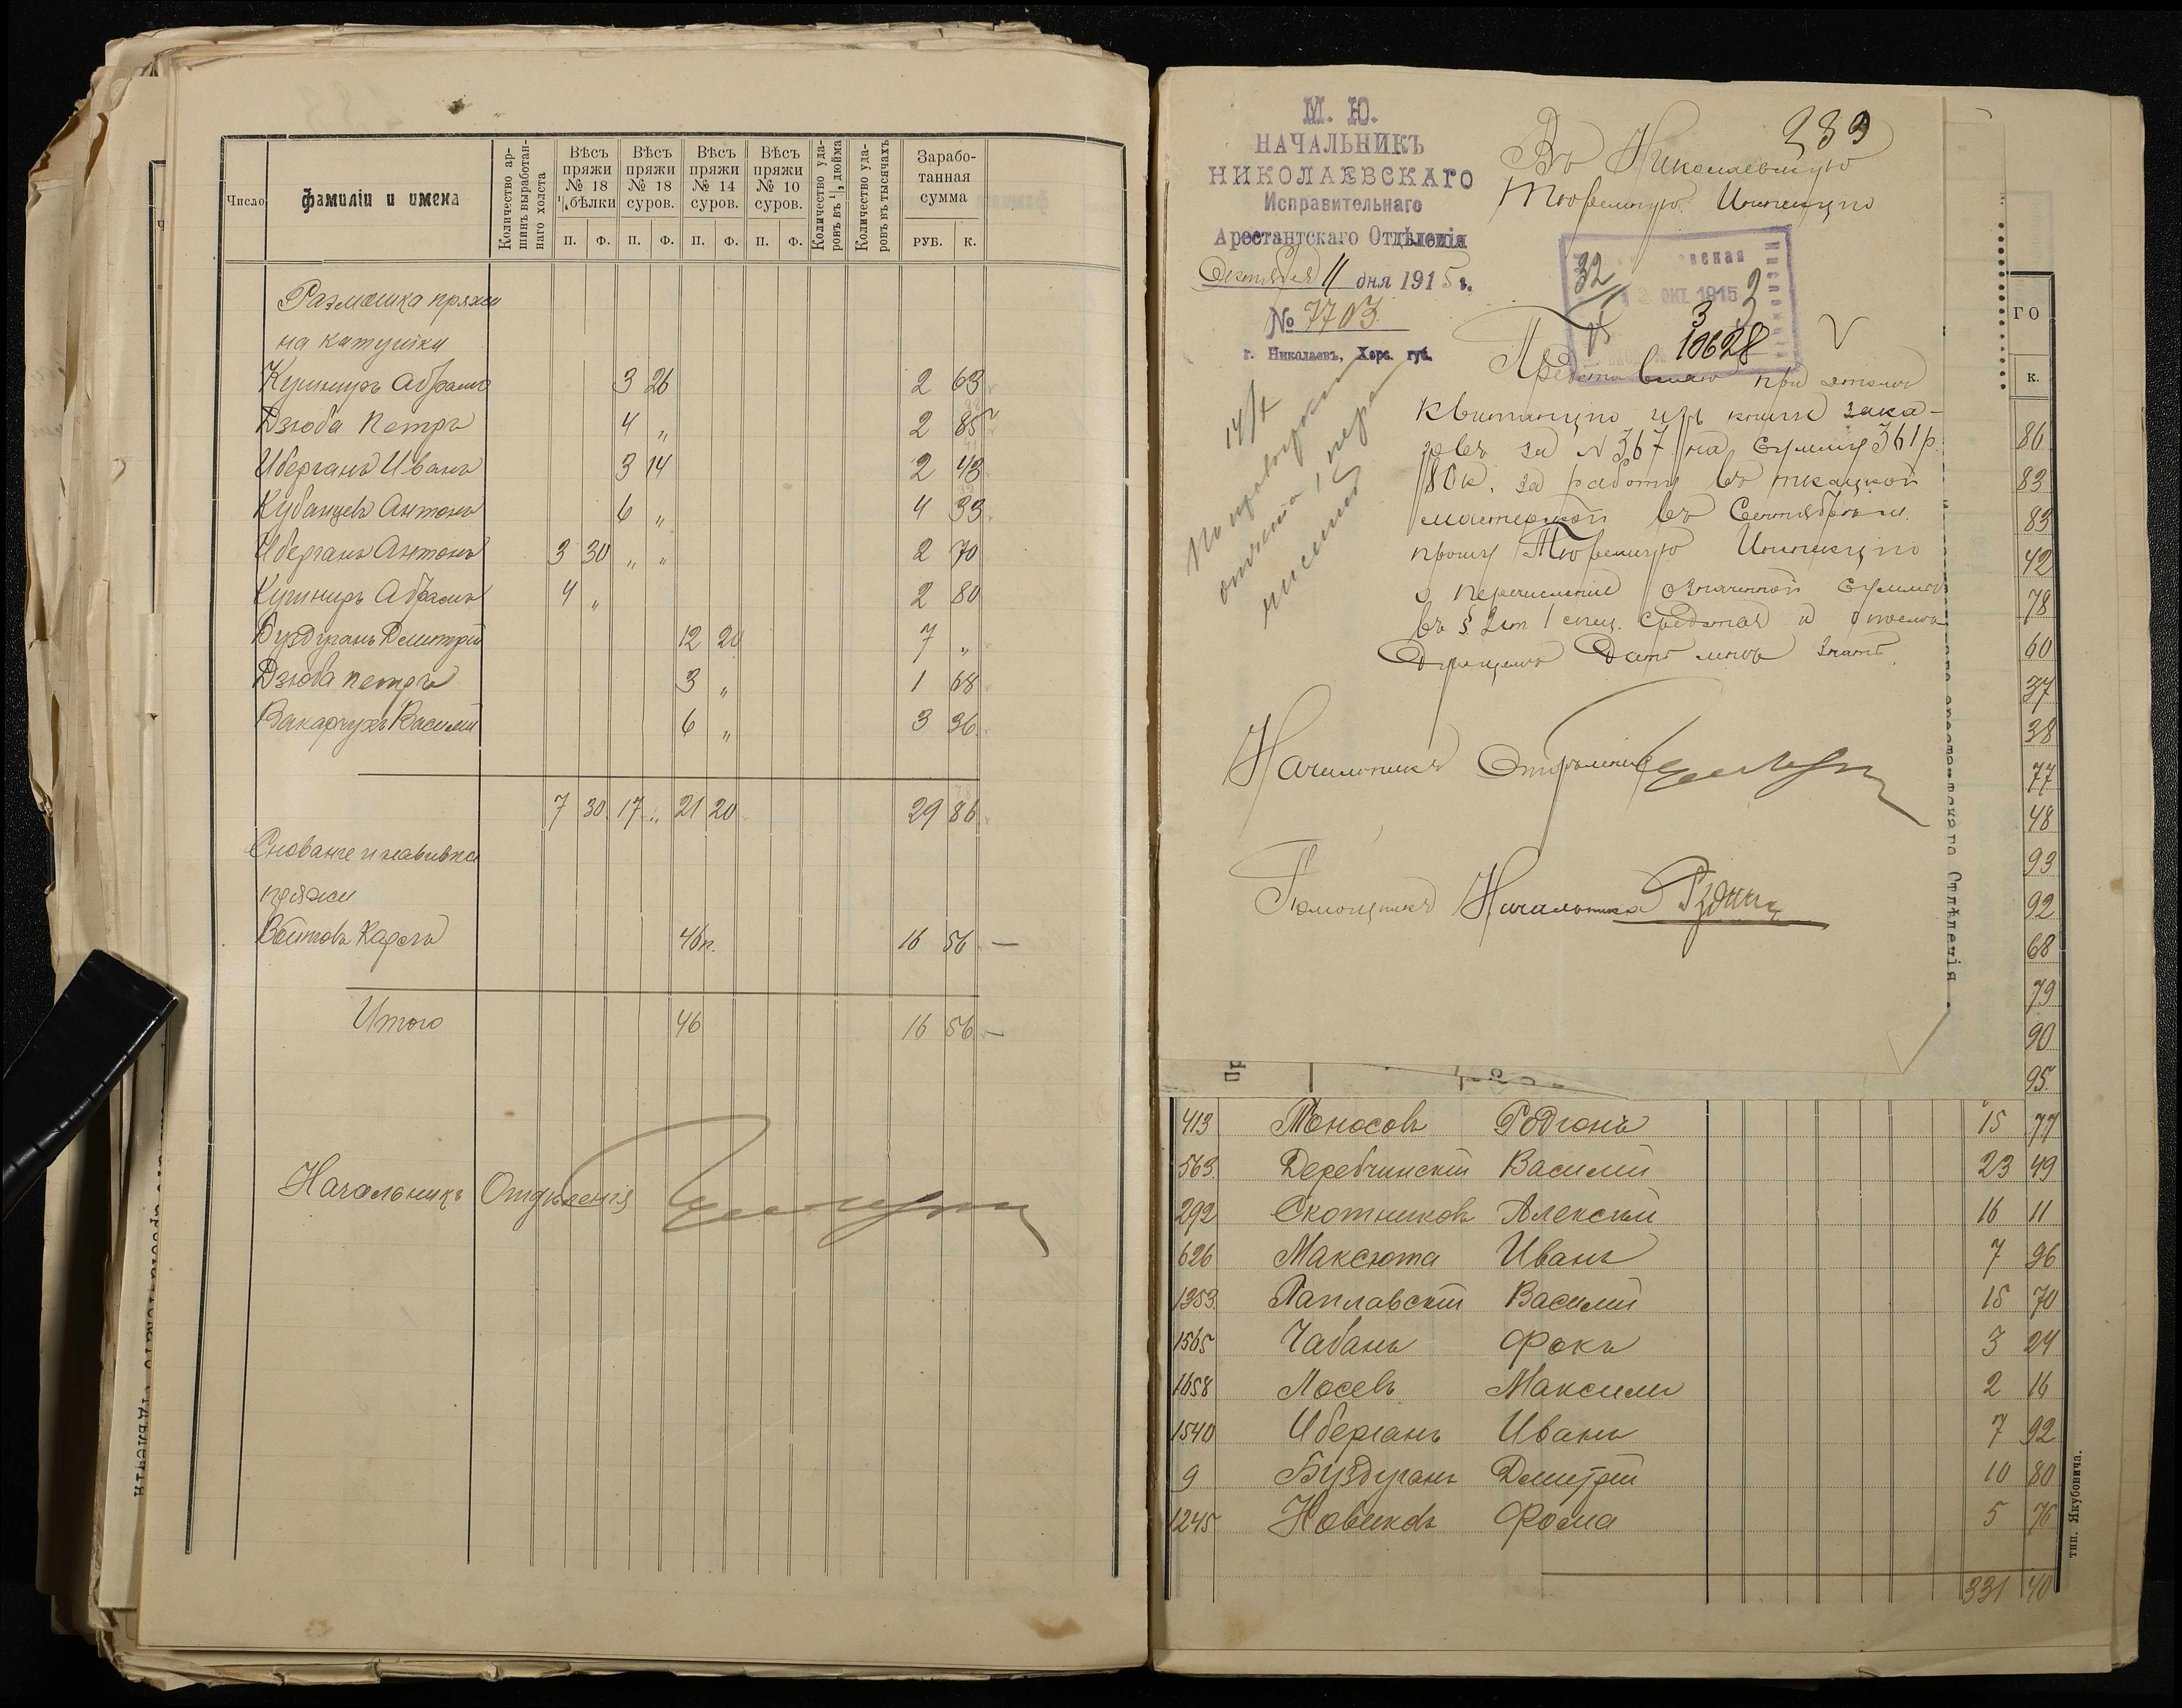 Число
Фамиліи и имена
Количество ар-
шинъ выработан-
наго холста
Вѣсъ пряжи № 18 ½ бѣлки
Вѣсъ пряжи № 18 суров.
Вѣсъ пряжи № 14 суров.
Вѣсъ пряжи № 10 суров.
Количество уда-
ровъ въ ¼ дюйма
Количество уда-
ровъ въ тысячахъ
Зарабо-
танная
сумма
П. Ф. П. Ф. П. Ф. П. Ф. РУБ. К.
Размотка пряжи
на катушки
Кушниръ Абрамъ 3 26 2 63
Дзюба Петръ 4 „ 2 85
Иберганъ Иванъ 3 14 2 43
Кубанцевъ Антонъ 6 „ 4 33
Ибергань Антонъ 3 30 „ „ 2 70
Кушниръ Абрамъ 4 „ 2 80
Буздуганъ Дмитрій 12 20 7 „
Дзюба Петръ 3 „ 1 68
Вакарчукъ Василій 6 „ 3 36
7 30 17 „ 21 20 29 86
Снованіе и навивка
пряжи
Войтовъ Карпъ 46 п. 16 56 —
Итого 46 16 56 —
Начальникъ Отдѣленія
М. Ю.
НАЧАЛЬНИКЪ
НИКОЛАЕВСКАГО
Исправительнаго
Арестантскаго Отдѣленія
Октября 11 дня 1915 г.
№ 7703
г. Николаевъ, Херс. губ.
283
Въ Николаевскую
Тюремную Инспекцію
ОКТ. 1915
32
3
10628
14/X
Представляю при этомъ
квитанцію изъ книги зака-
зовъ за № 367 на сумму 361 р.
80 к. за работу въ ткацкой
мастерской въ Сентябрѣ м.
прошу Тюремную Инспекцію
о перечисленіи означенной суммы
въ § 2 ст. 1 спец. средствъ и о послѣ-
дующемъ дать мнѣ знать.
Начальникъ Отдѣленія
Помощникъ Начальника
ГО
К.
86
83
83
42
78
60
37
38
77
48
93
92
68
79
90
95
413 Тоносовъ Родіонъ 15 77
563 Деребчинскій Василій 23 49
292 Скотниковъ Алексѣй 16 11
626 Максюта Иванъ 7 96
1353 Паплавскій Василій 15 70
1565 Чабанъ Фокъ 3 24
1658 Лосевъ Максимъ 2 16
1540 Ибергань Иванъ 7 92
9 Буздуганъ Дмитрій 10 80
1245 Новиковъ Фома 5 76
331 40
тип. Якубовича.